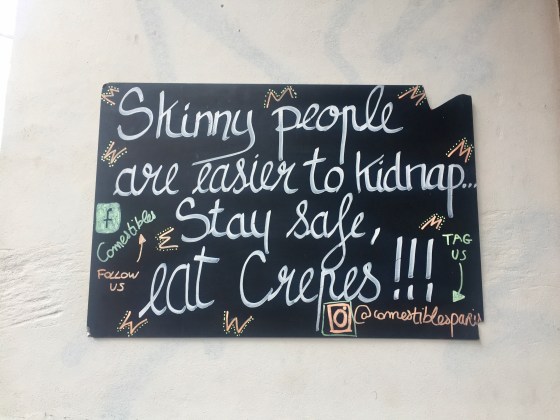 Skinny people
are easier to kidnap...
Stay safe,
eat Crepes!!!
f
Comestibles
FOLLOW
US
TAG
US
@comestiblesparis